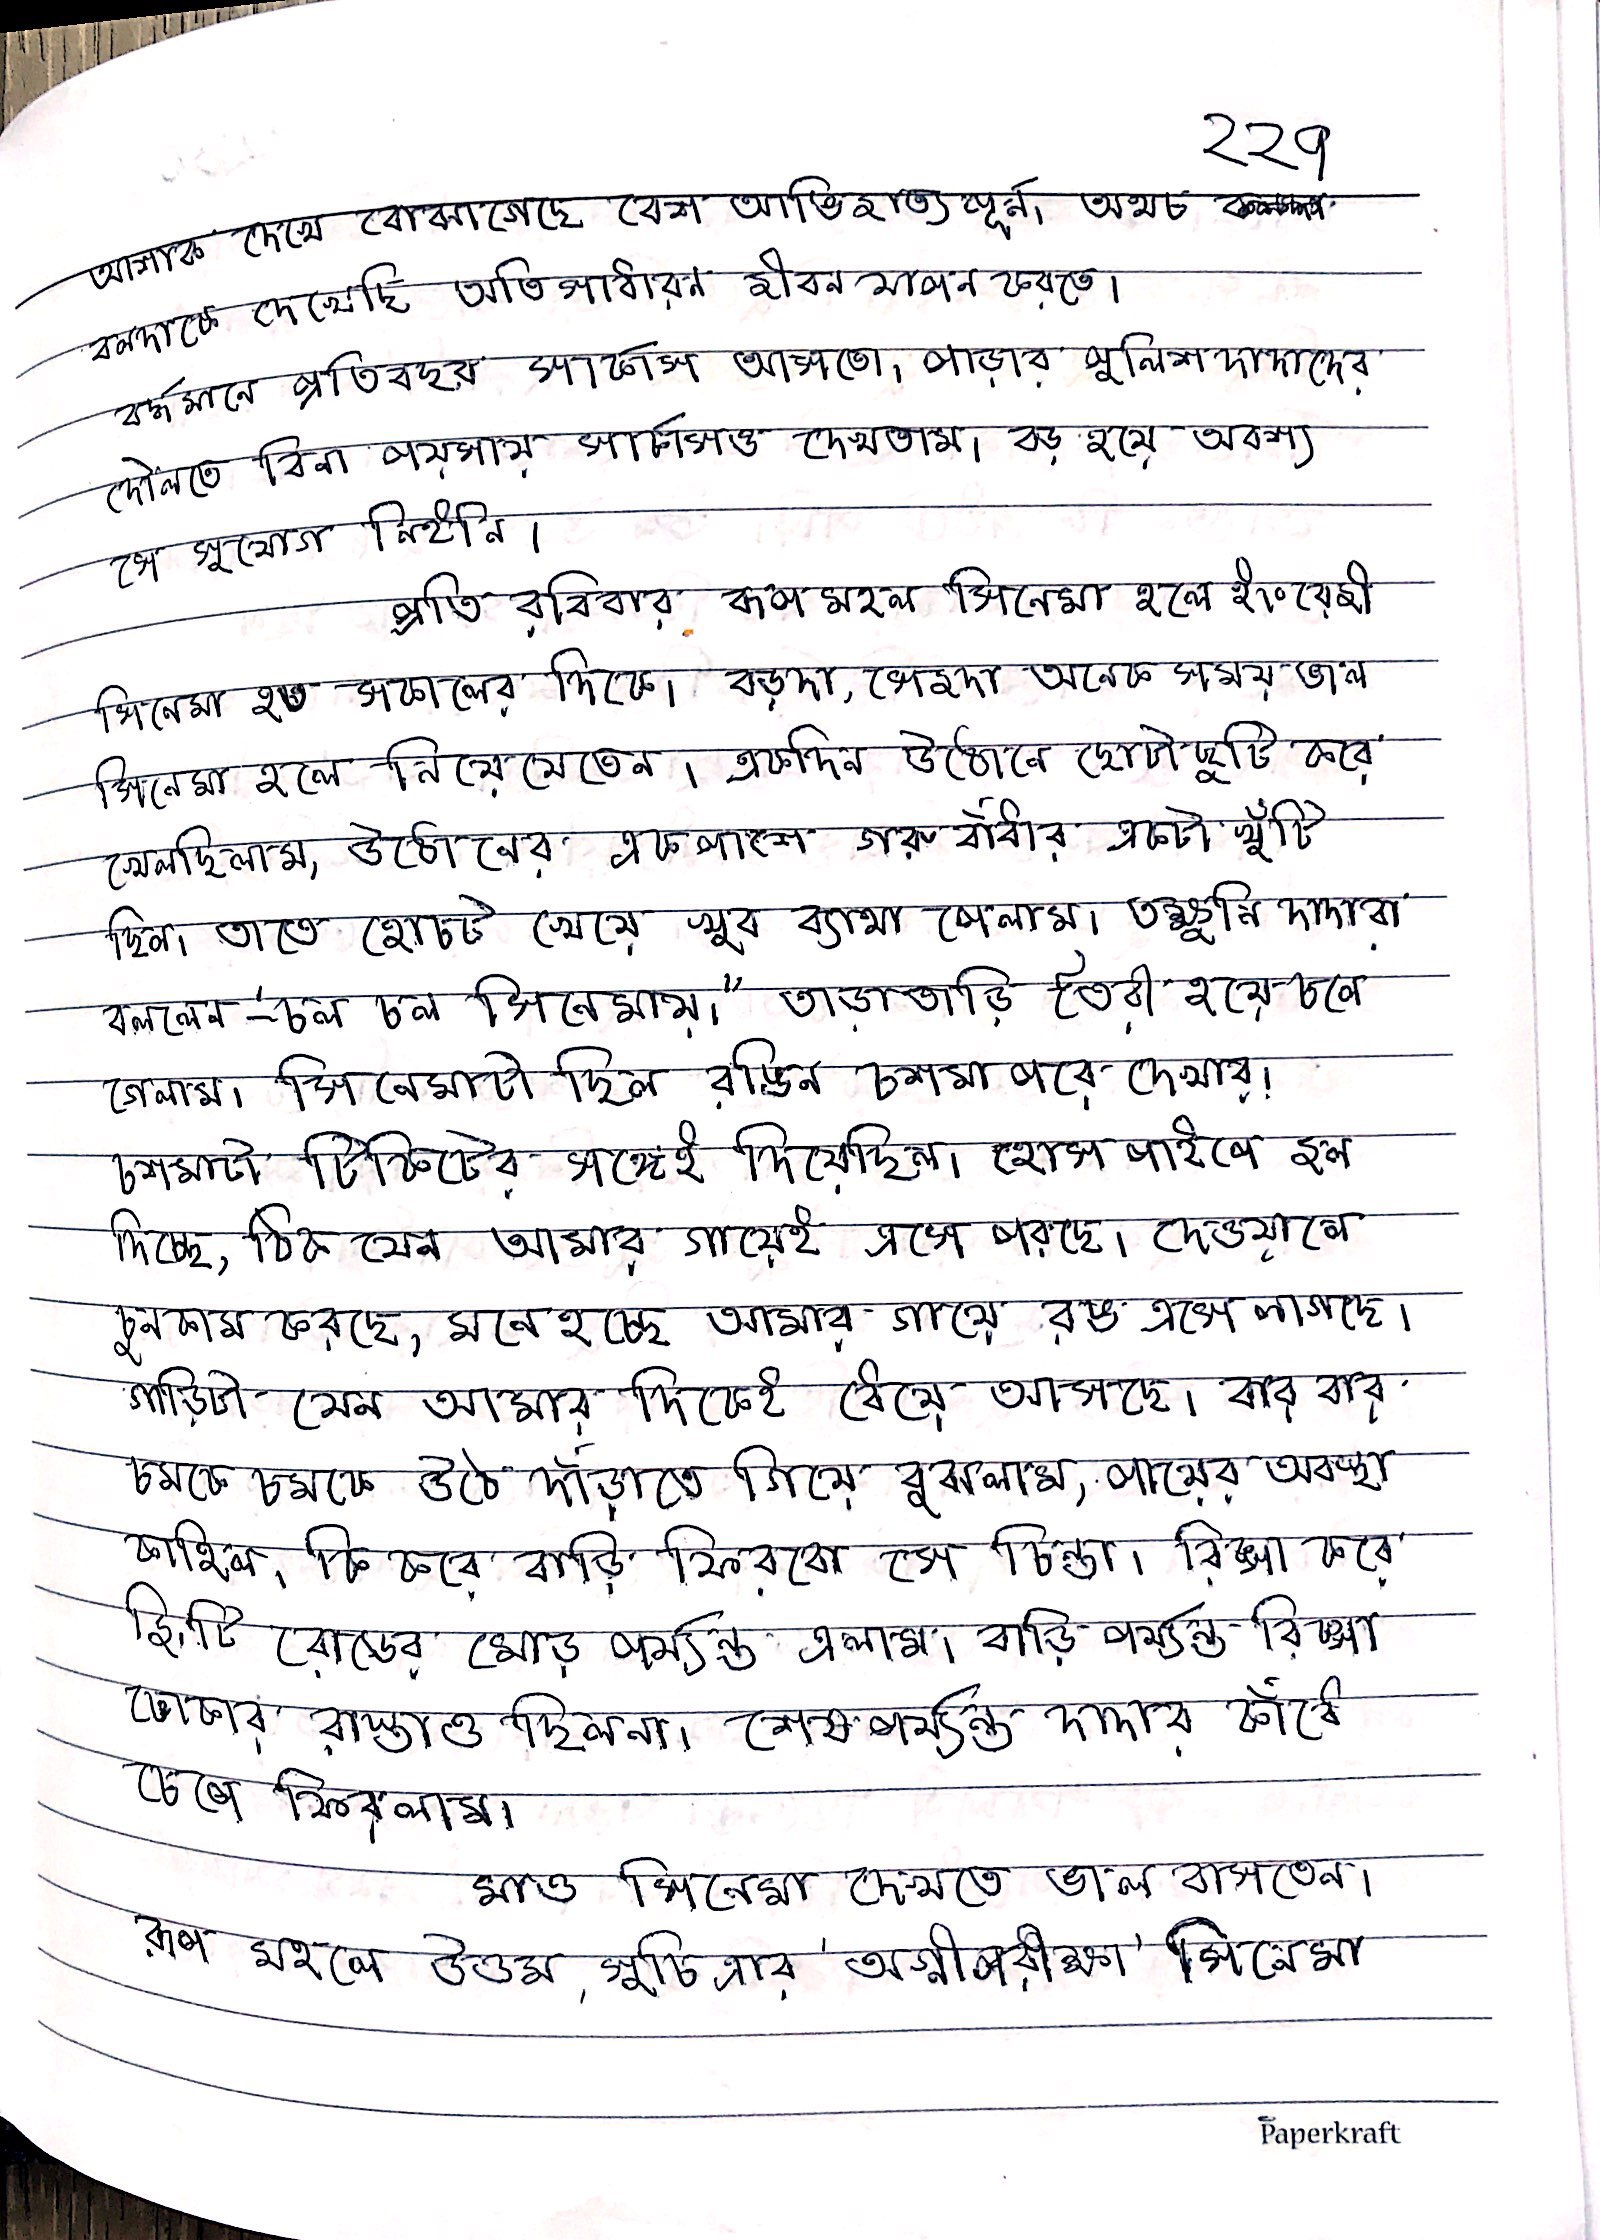 ২২৭
আশাক দেখে বোঝাগেছে বেশ আভিজাত্যপূর্ন। অথচ
বলদাকে দেখেছি অতি সাধারন জীবন যাপন করতে।
বর্দ্ধমানে প্রতিবছর সার্কাস আসতো। পাড়ার পুলিশ দাদাদের
দৌলতে বিনা পয়সায় সার্কাসও দেখতাম। বড় হয়ে অবশ্য
সে সুযোগ নিইনি।
প্রতি রবিবার রূপমহল সিনেমা হলে ইংরেজী
সিনেমা হত সকালের দিকে। বড়দা, সেজদা অনেক সময় ভাল
সিনেমা হলে নিয়েযেতেন। একদিন উঠোনে ছোটাছুটি করে
খেলছিলাম, উঠোনের একপাশে গরু বাঁধার একটা খুঁটি
ছিল। তাতে হোচট খেয়ে খুব ব্যাথা পেলাম। তক্ষুনি দাদারা
বললেন – "চল চল সিনেমায়।" তাড়াতাড়ি তৈরী হয়ে চলে
গেলাম। সিনেমাটা ছিল রঙিন চশমা পরে দেখার।
চশমাটা টিকিটের সঙ্গেই দিয়েছিল। হোস পাইপে জল
দিচ্ছে, ঠিক যেন আমার গায়েই এসে পরছে। দেওয়ালে
চুনকাম করছে, মনেহচ্ছে আমার গায়ে রঙ এসে লাগছে।
গাড়িটা যেন আমার দিকেই ধেয়ে আসছে। বার বার
চমকে চমকে উঠে দাঁড়াতে গিয়ে বুঝলাম, পায়ের অবস্থা
কাহিল। কি করে বাড়ি ফিরবো সে চিন্তা। রিক্সা করে
জি.টি রোডের মোড় পর্য্যন্ত এলাম। বাড়ি পর্য্যন্ত রিক্সা
ঢোকার রাস্তাও ছিলনা। শেষপর্য্যন্ত দাদার কাঁধে
চেপে ফিরলাম।
মাও সিনেমা দেখতে ভাল বাসতেন।
রূপ মহলে উত্তম, সুচিত্রার 'অগ্নীপরীক্ষা' সিনেমা
Paperkraft